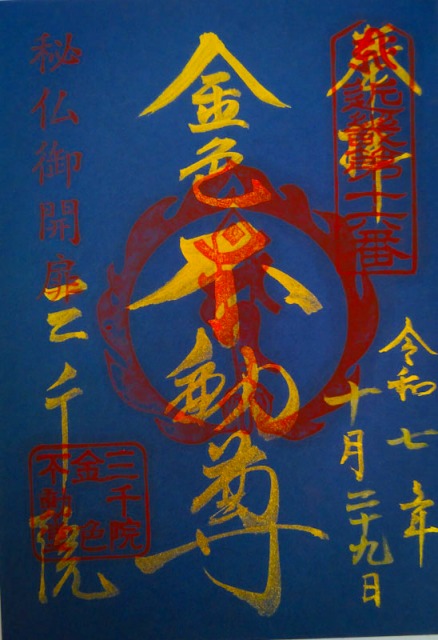 奉拝
近畿第十六番
令和七年
十月二十九日
金色不動尊
秘仏御開扉
三千院
三千院
金色
不動堂